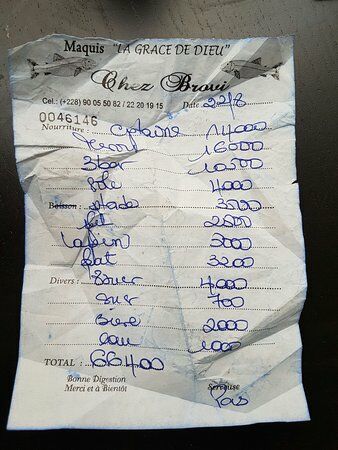 Maquis "LA GRACE DE DIEU"
Chez Brovi
Cel.: (+228) 90 05 50 82 / 22 20 19 15 Date : 22/8
0046146
Nourriture : 14000
16000
3 bar 10500
Sole 4000
Boisson : 3500
2500
Lapin 5000
plat 3200
Divers : 4000
700
Biere 2000
eau 1000
TOTAL : 66400
Bonne Digestion
Merci et à Bientôt
Serveuse